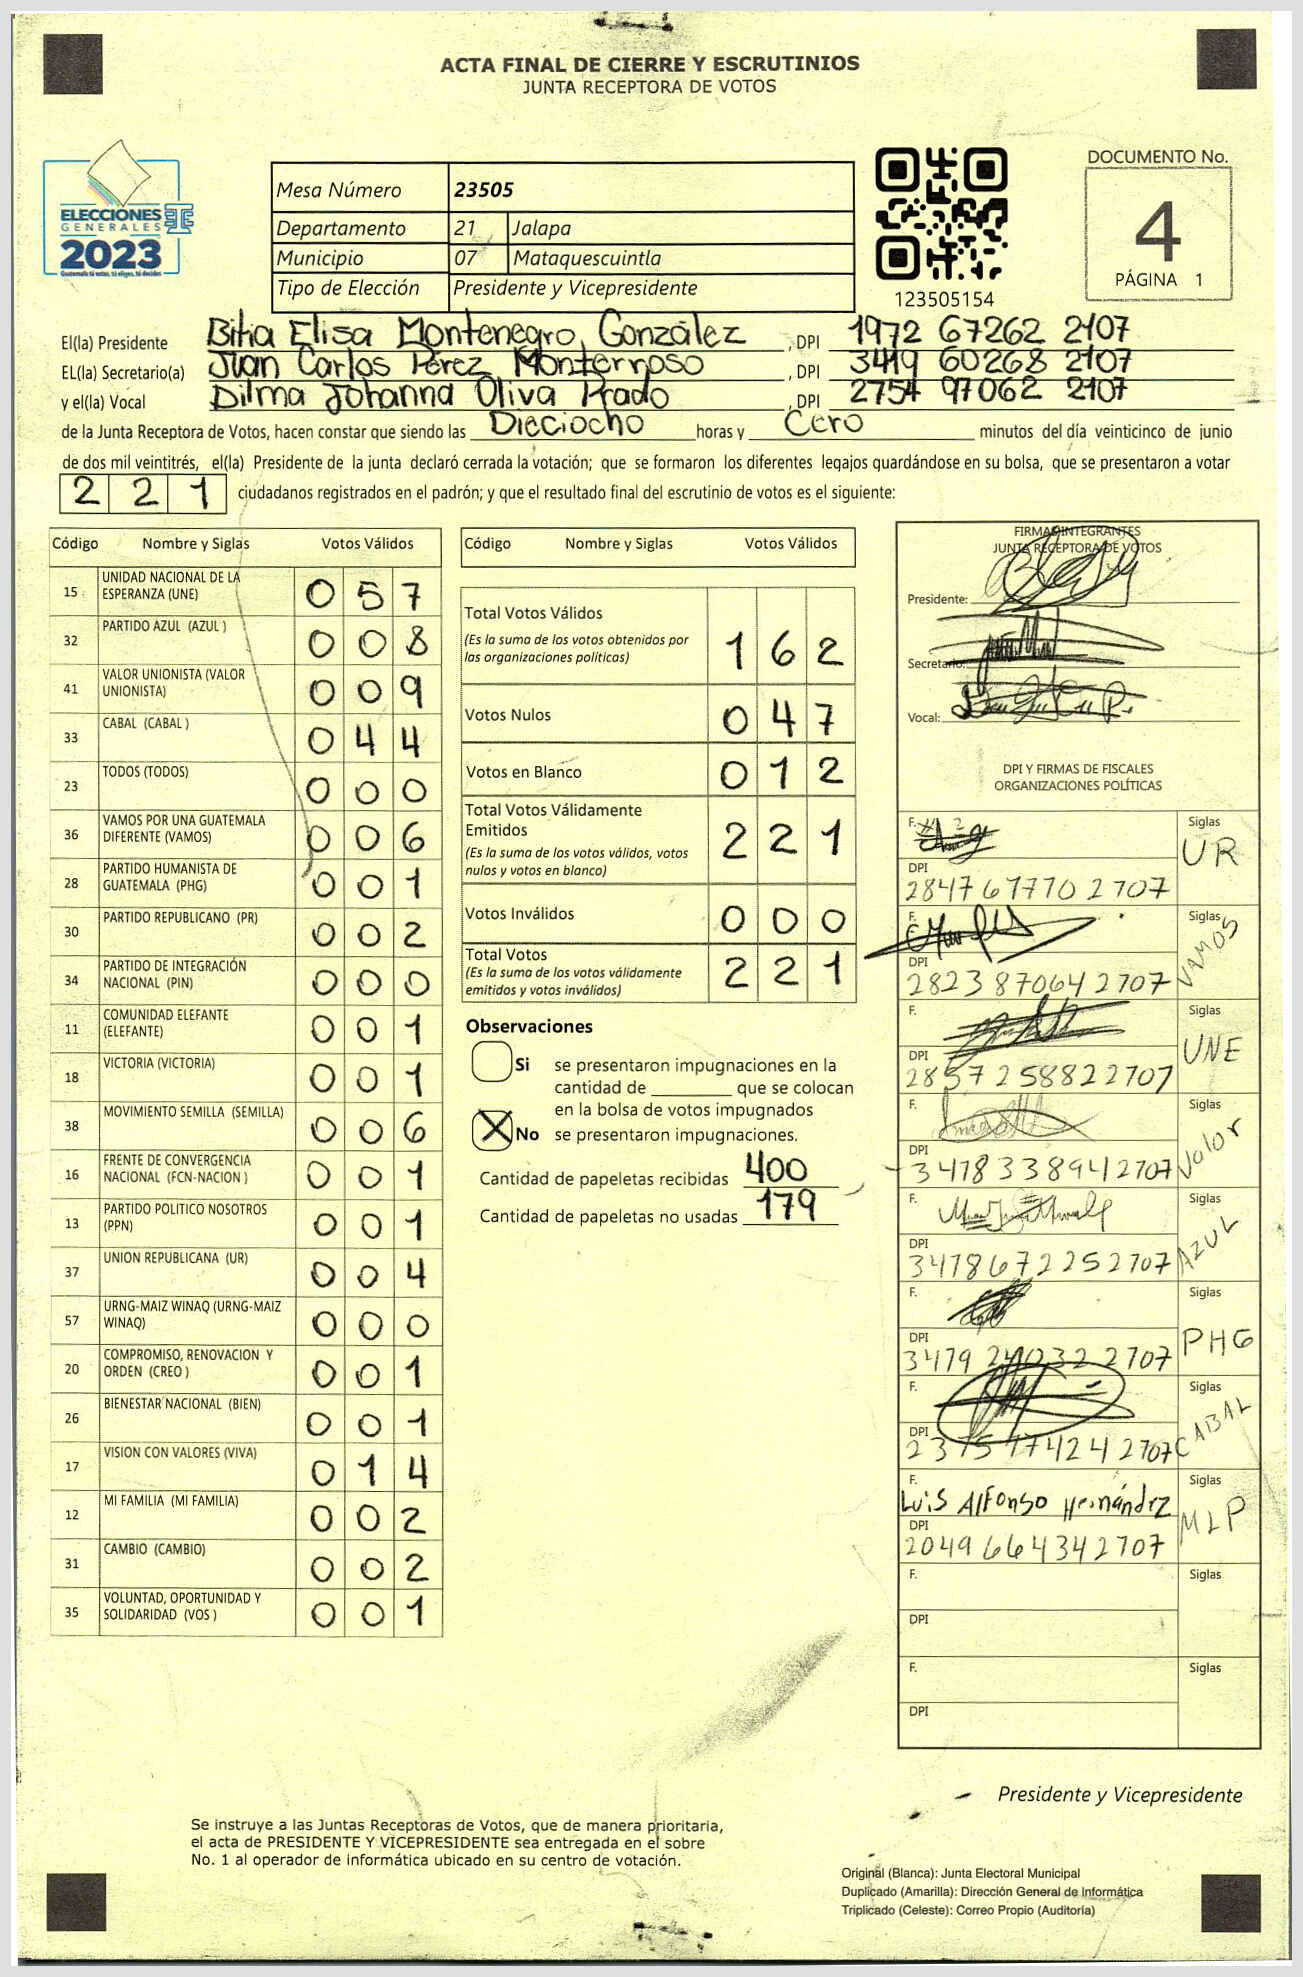 ACTA FINAL DE CIERRE Y ESCRUTINIOS
JUNTA RECEPTORA DE VOTOS
ELECCIONES
GENERALES
2023
Guatemala tú votas, tú eliges, tú decides
Mesa Número 23505
Departamento 21 Jalapa
Municipio 07 Mataquescuintla
Tipo de Elección Presidente y Vicepresidente
123505154
DOCUMENTO No.
4
PÁGINA 1
El(la) Presidente Bitia Elisa Montenegro González , DPI 1972 67262 2107
EL(la) Secretario(a) Juan Carlos Pérez Monterroso , DPI 3419 60268 2107
y el(la) Vocal Dilma Johanna Oliva Prado , DPI 2754 97062 2107
de la Junta Receptora de Votos, hacen constar que siendo las Dieciocho horas y Cero minutos del día veinticinco de junio
de dos mil veintitrés, el(la) Presidente de la junta declaró cerrada la votación; que se formaron los diferentes legajos guardándose en su bolsa, que se presentaron a votar
2 2 1 ciudadanos registrados en el padrón; y que el resultado final del escrutinio de votos es el siguiente:
Código Nombre y Siglas Votos Válidos
15 UNIDAD NACIONAL DE LA ESPERANZA (UNE) 0 5 7
32 PARTIDO AZUL (AZUL ) 0 0 8
41 VALOR UNIONISTA (VALOR UNIONISTA) 0 0 9
33 CABAL (CABAL ) 0 4 4
23 TODOS (TODOS) 0 0 0
36 VAMOS POR UNA GUATEMALA DIFERENTE (VAMOS) 0 0 6
28 PARTIDO HUMANISTA DE GUATEMALA (PHG) 0 0 1
30 PARTIDO REPUBLICANO (PR) 0 0 2
34 PARTIDO DE INTEGRACIÓN NACIONAL (PIN) 0 0 0
11 COMUNIDAD ELEFANTE (ELEFANTE) 0 0 1
18 VICTORIA (VICTORIA) 0 0 1
38 MOVIMIENTO SEMILLA (SEMILLA) 0 0 6
16 FRENTE DE CONVERGENCIA NACIONAL (FCN-NACION ) 0 0 1
13 PARTIDO POLITICO NOSOTROS (PPN) 0 0 1
37 UNION REPUBLICANA (UR) 0 0 4
57 URNG-MAIZ WINAQ (URNG-MAIZ WINAQ) 0 0 0
20 COMPROMISO, RENOVACION Y ORDEN (CREO ) 0 0 1
26 BIENESTAR NACIONAL (BIEN) 0 0 1
17 VISION CON VALORES (VIVA) 0 1 4
12 MI FAMILIA (MI FAMILIA) 0 0 2
31 CAMBIO (CAMBIO) 0 0 2
35 VOLUNTAD, OPORTUNIDAD Y SOLIDARIDAD (VOS ) 0 0 1
Código Nombre y Siglas Votos Válidos
Total Votos Válidos
(Es la suma de los votos obtenidos por
las organizaciones políticas) 1 6 2
Votos Nulos 0 4 7
Votos en Blanco 0 1 2
Total Votos Válidamente
Emitidos 2 2 1
(Es la suma de los votos válidos, votos
nulos y votos en blanco)
Votos Inválidos 0 0 0
Total Votos 2 2 1
(Es la suma de los votos válidamente
emitidos y votos inválidos)
Observaciones
Si se presentaron impugnaciones en la
cantidad de que se colocan
en la bolsa de votos impugnados
X No se presentaron impugnaciones.
Cantidad de papeletas recibidas 400
Cantidad de papeletas no usadas 179
FIRMAS INTEGRANTES
JUNTA RECEPTORA DE VOTOS
Presidente:
Secretario:
Vocal:
DPI Y FIRMAS DE FISCALES
ORGANIZACIONES POLÍTICAS
F. Siglas UR
DPI 2847677702707
F. Siglas VAMOS
DPI 2823870642707
F. Siglas UNE
DPI 2857258822707
F. Siglas Valor
DPI 3478338942707
F. Siglas AZUL
DPI 3478672252707
F. Siglas PHG
DPI 3479 2707
F. Siglas CABAL
DPI
F. Luis Alfonso Hernández Siglas MLP
DPI 2049664342707
F. Siglas
DPI
F. Siglas
DPI
Presidente y Vicepresidente
Se instruye a las Juntas Receptoras de Votos, que de manera prioritaria,
el acta de PRESIDENTE Y VICEPRESIDENTE sea entregada en el sobre
No. 1 al operador de informática ubicado en su centro de votación.
Original (Blanca): Junta Electoral Municipal
Duplicado (Amarilla): Dirección General de Informática
Triplicado (Celeste): Correo Propio (Auditoría)